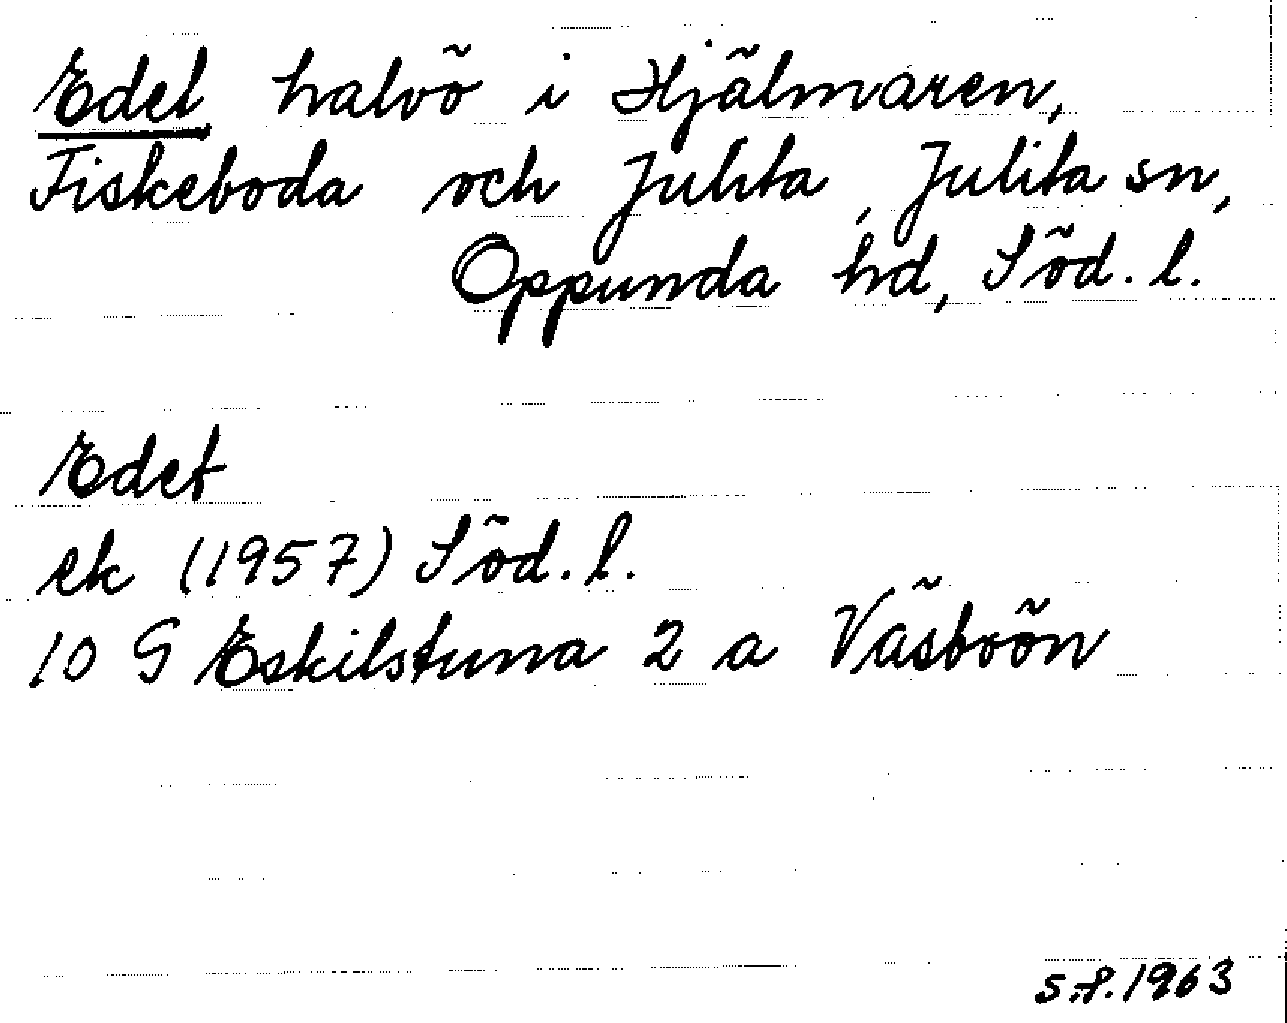 Edet, halvö i Hjälmaren,
Fiskeboda och Julita, Julita sn,
Oppunda hd, Söd. l.
Edet
ek (1957) Söd. l.
10 G Eskilstuna 2 a Väsbyön
1963